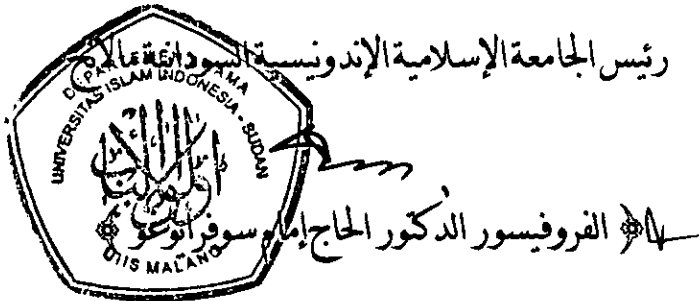 رئيس الجامعة الإسلامية الإندونيسية السودانية مالانج
DEPARTEMEN AGAMA
UNIVERSITAS ISLAM INDONESIA - SUDAN
الفروفيسور الدكتور الحاج إمام سوفرايوغو
UIIS MALANG